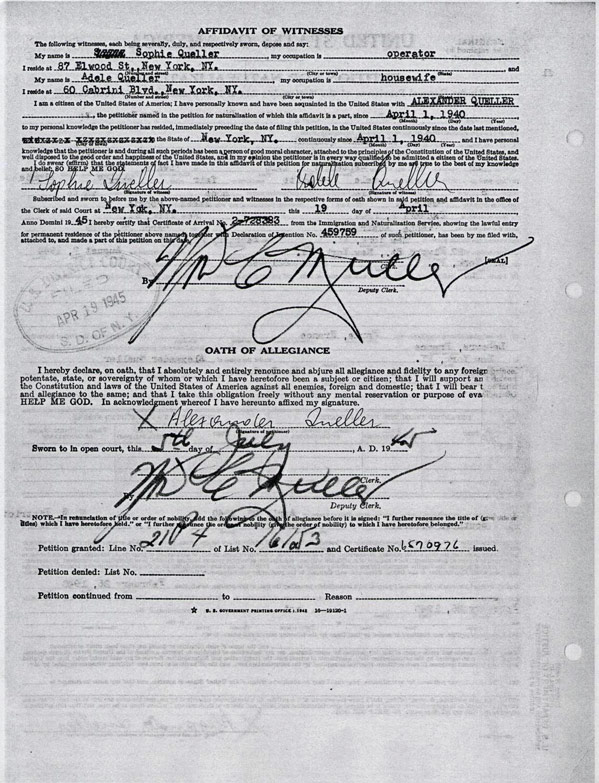 AFFIDAVIT OF WITNESSES
The following witnesses, each being severally, duly, and respectively sworn, depose and say:
My name is Sophie Queller, my occupation is operator
I reside at 87 Elwood St., New York, NY. and
(Number and street) (City or town) (State)
My name is Adele Queller, my occupation is housewife
I reside at 60 Cabrini Blvd., New York, NY.
(Number and street) (City or town)
I am a citizen of the United States of America; I have personally known and have been acquainted in the United States with ALEXANDER QUELLER
, the petitioner named in the petition for naturalization of which this affidavit is a part, since April 1, 1940
(Month) (Day) (Year)
to my personal knowledge the petitioner has resided, immediately preceding the date of filing this petition, in the United States continuously since the date last mentioned,
the State of New York, NY. continuously since April 1, 1940, and I have personal
(Month) (Day) (Year)
knowledge that the petitioner is and during all such periods has been a person of good moral character, attached to the principles of the Constitution of the United States, and
well disposed to the good order and happiness of the United States, and in my opinion the petitioner is in every way qualified to be admitted a citizen of the United States.
I do swear (affirm) that the statements of fact I have made in this affidavit of this petition for naturalization subscribed by me are true to the best of my knowledge
and belief: SO HELP ME GOD.
Sophie Queller Adele Queller
(Signature of witness) (Signature of witness)
Subscribed and sworn to before me by the above-named petitioner and witnesses in the respective forms of oath shown in said petition and affidavit in the office of
the Clerk of said Court at New Yok, NY. this 19 day of April
Anno Domini 19 45 I hereby certify that Certificate of Arrival No. 2-728393 from the Immigration and Naturalization Service, showing the lawful entry
for permanent residence of the petitioner above named, together with Declaration of Intention No. 459759 of such petitioner, has been by me filed with,
attached to, and made a part of this petition on this date.
[SEAL]
By Wm C Mueller
Deputy Clerk.
U.S. DISTRICT COURT
FILED
APR 19 1945
S. D. OF N. Y.
OATH OF ALLEGIANCE
I hereby declare, on oath, that I absolutely and entirely renounce and abjure all allegiance and fidelity to any foreign
potentate, state, or sovereignty of whom or which I have heretofore been a subject or citizen; that I will support an
the Constitution and laws of the United States of America against all enemies, foreign and domestic; that I will bear t
and allegiance to the same; and that I take this obligation freely without any mental reservation or purpose of eva
HELP ME GOD. In acknowledgment whereof I have hereunto affixed my signature.
X Alexander Queller
(Signature of petitioner)
Sworn to in open court, this 5th day of July, A. D. 19 45
Clerk.
By Wm C Mueller
Deputy Clerk.
NOTE.—In renunciation of title or order of nobility, add the following to the oath of allegiance before it is signed: "I further renounce the title of (g
titles) which I have heretofore held," or "I further renounce the order of nobility (give the order of nobility) to which I have heretofore belonged."
Petition granted: Line No. of List No. and Certificate No. 6570976 issued.
Petition denied: List No.
Petition continued from to Reason
★ U. S. GOVERNMENT PRINTING OFFICE : 1942 16—19120-1